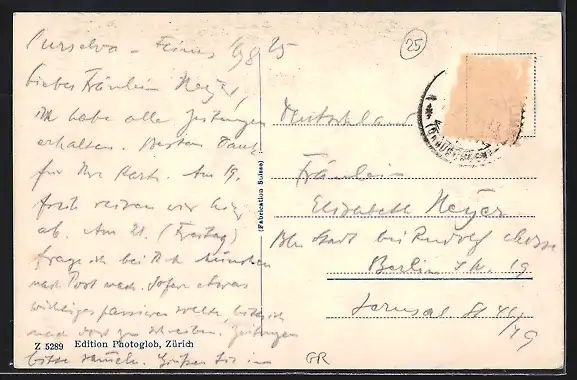 Purselva - Fimes 16/8 25
liebes Fräulein Meyer,
ich habe alle Zeitungen
erhalten. Besten Dank
für Ihre Karte. Am 19.
früh reisen wir hier
ab. Am 21. (Freitag)
frage ich bei Post München
nach Post nach. Sofern etwas
wichtiges passieren sollte bitte ich
nach dort zu schreiben. Zeitungen
bitte
Z 5289 Edition Photoglob, Zürich
(Fabrication Suisse)
25
Deutschland
Fräulein
Elisabeth Meyer
bei Rudolf Mosse
Berlin SW. 19
Jerusal. St 46/49
GR